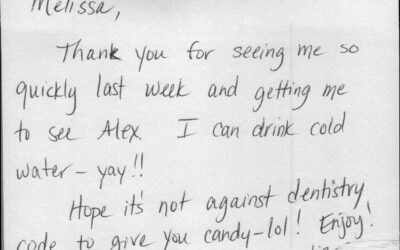 Melissa,
Thank you for seeing me so
quickly last week and getting me
to see Alex. I can drink cold
water - yay!!
Hope it's not against dentistry
code to give you candy-lol! Enjoy!